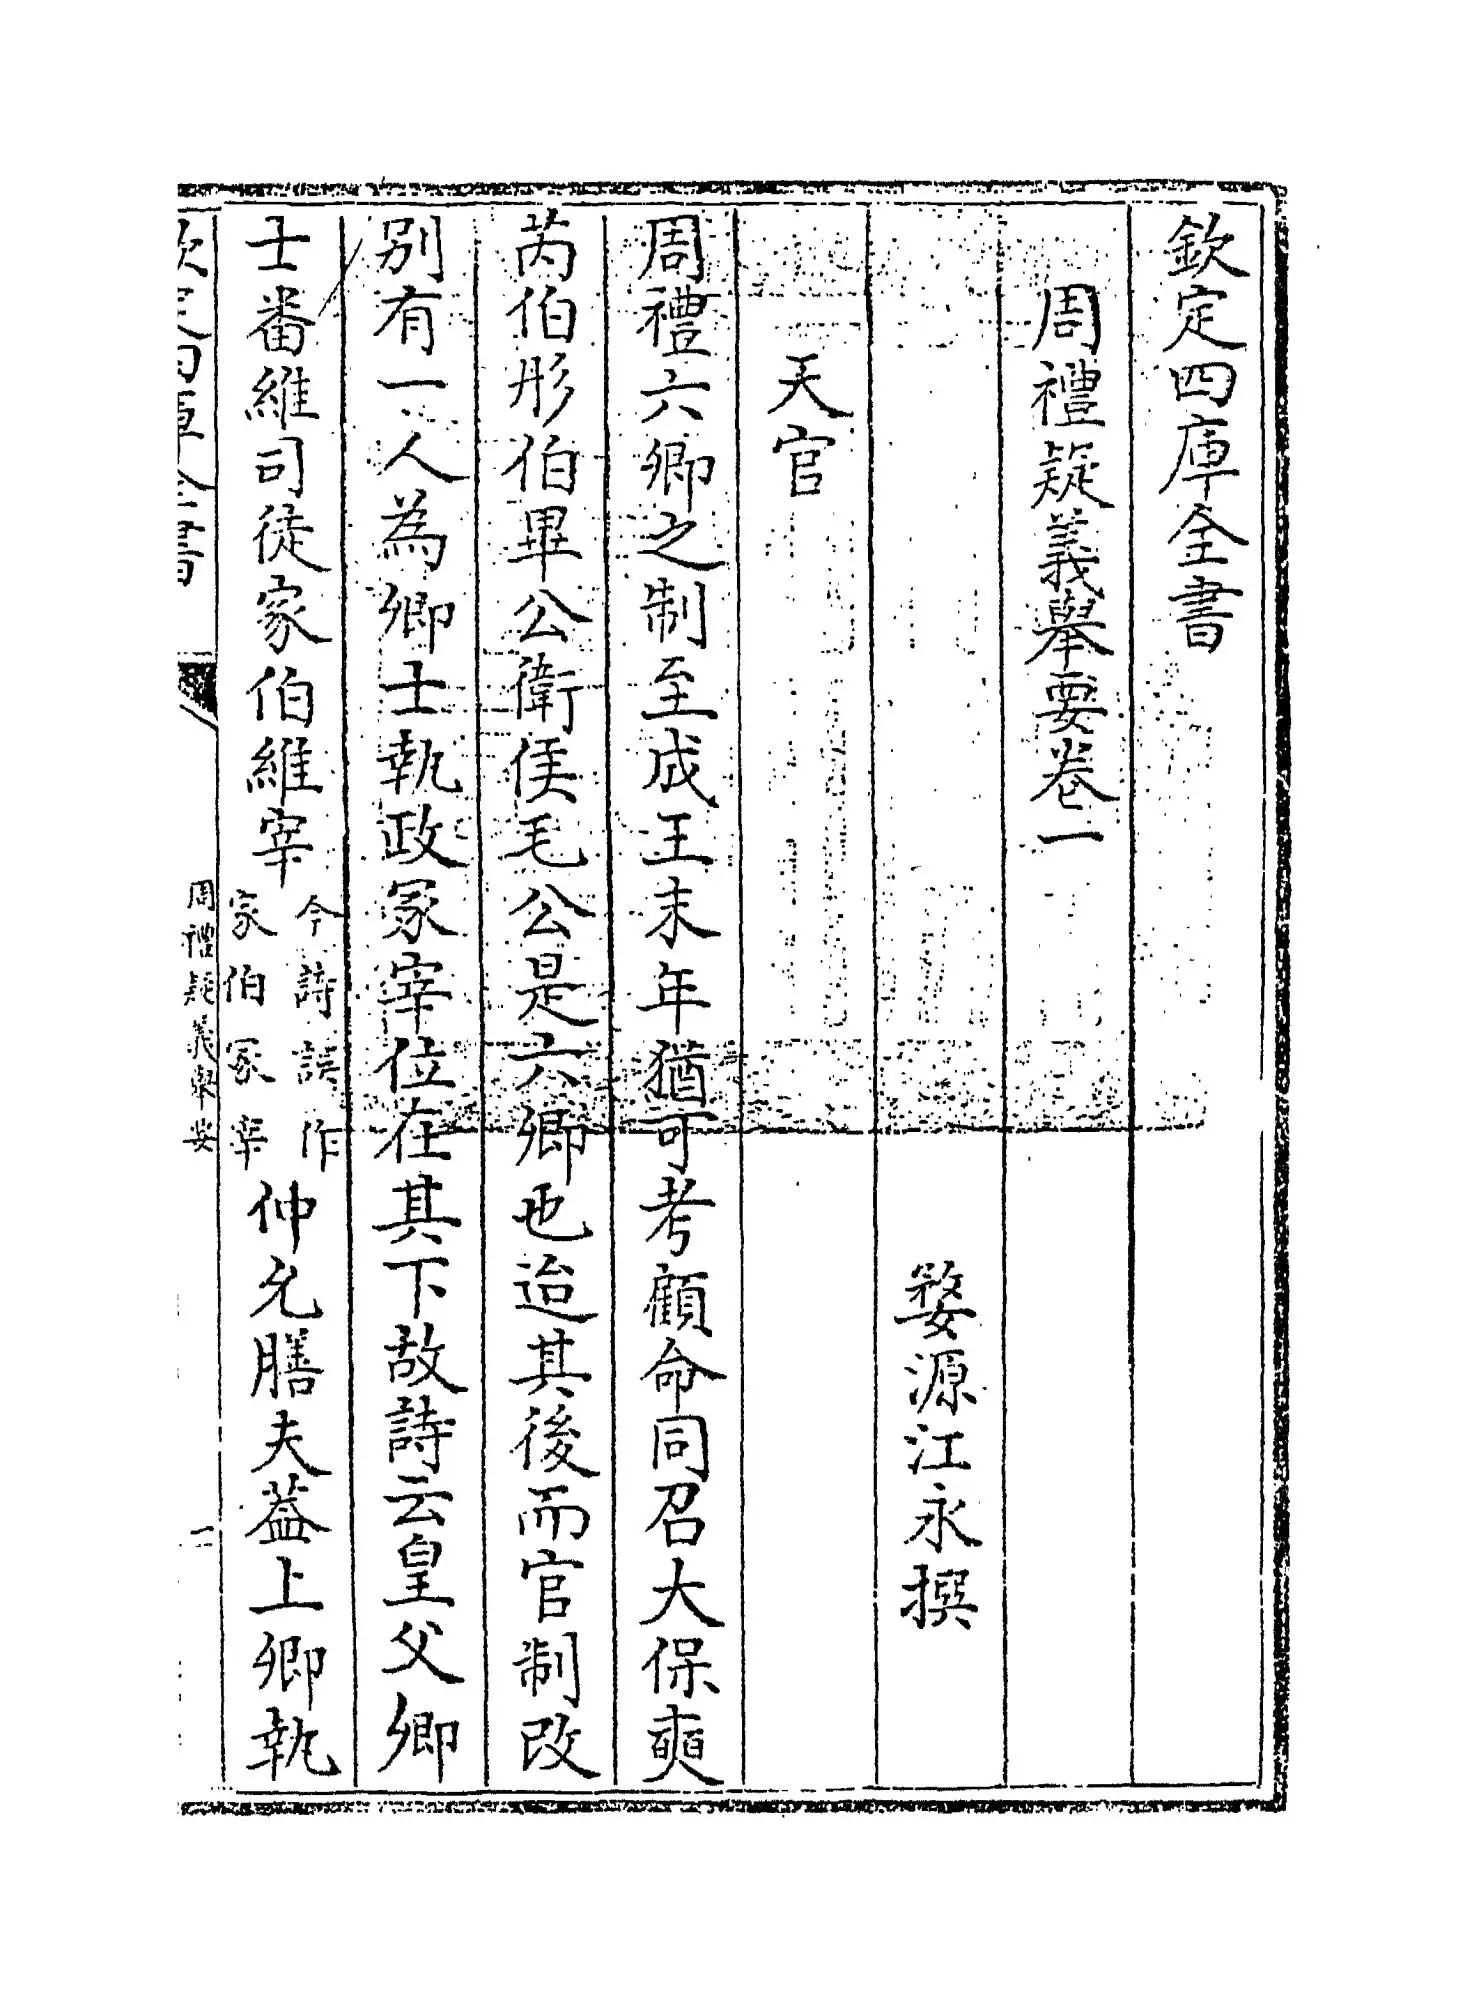 欽定四庫全書
周禮疑義舉要卷一
婺源江永撰
天官
周禮六卿之制至成王末年猶可考顧命同召大保奭
芮伯彤伯畢公衛侯毛公是六卿也迨其後而官制改
别有一人為卿士執政冢宰位在其下故詩云皇父卿
士番維司徒家伯維宰
今詩誤作
家伯冢宰
仲允膳夫蓋上卿執
欽定四庫全書
周禮疑義舉要
一